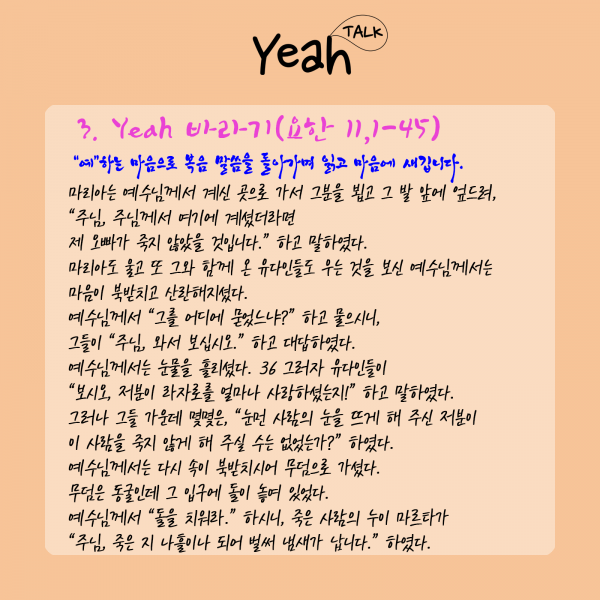 Yeah TALK
3. Yeah 바라기(요한 11,1-45)
"예"하는 마음으로 복음 말씀을 돌아가며 읽고 마음에 새깁니다.
마리아는 예수님께서 계신 곳으로 가서 그분을 뵙고 그 발 앞에 엎드려,
"주님, 주님께서 여기에 계셨더라면
제 오빠가 죽지 않았을 것입니다." 하고 말하였다.
마리아도 울고 또 그와 함께 온 유다인들도 우는 것을 보신 예수님께서는
마음이 북받치고 산란해지셨다.
예수님께서 "그를 어디에 묻었느냐?" 하고 물으시니,
그들이 "주님, 와서 보십시오." 하고 대답하였다.
예수님께서는 눈물을 흘리셨다. 36 그러자 유다인들이
"보시오, 저분이 라자로를 얼마나 사랑하셨는지!" 하고 말하였다.
그러나 그들 가운데 몇몇은, "눈먼 사람의 눈을 뜨게 해 주신 저분이
이 사람을 죽지 않게 해 주실 수는 없었는가?" 하였다.
예수님께서는 다시 속이 북받치시어 무덤으로 가셨다.
무덤은 동굴인데 그 입구에 돌이 놓여 있었다.
예수님께서 "돌을 치워라." 하시니, 죽은 사람의 누이 마르타가
"주님, 죽은 지 나흘이나 되어 벌써 냄새가 납니다." 하였다.